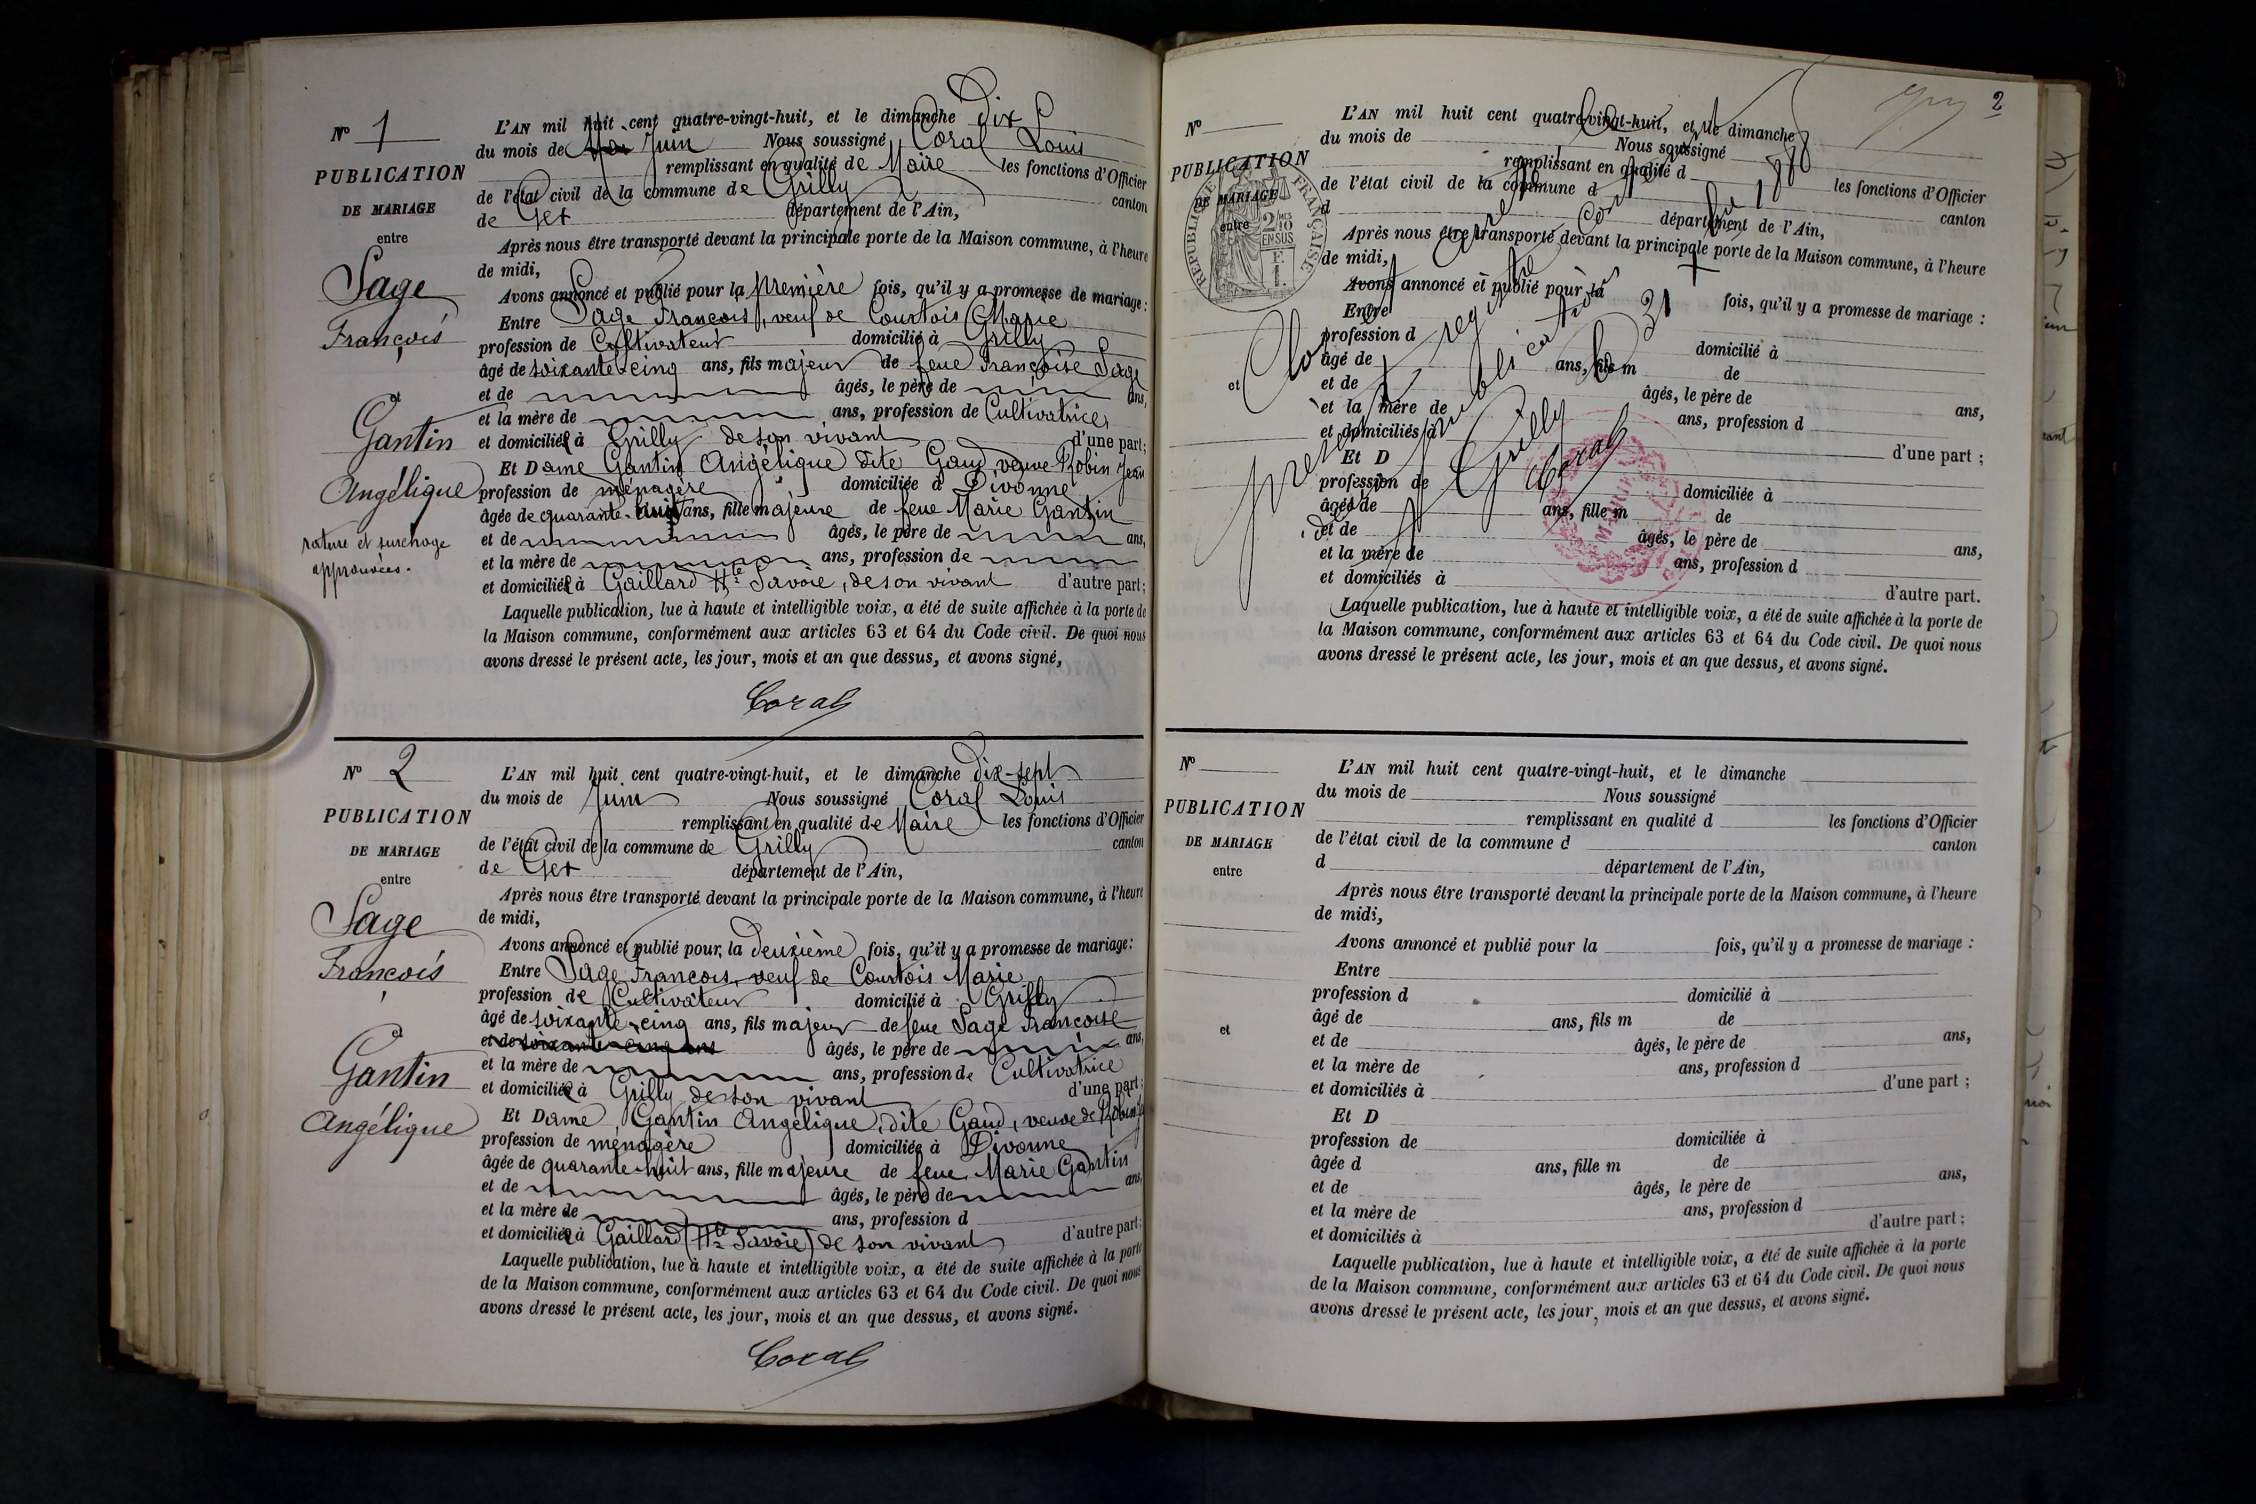 N° 1
PUBLICATION
DE MARIAGE
entre
Sage
François
et
Gantin
Angélique
rature et surcharge
approuvées.
L'AN mil huit cent quatre-vingt-huit, et le dimanche dix
du mois de Juin Nous soussigné Coral Louis
remplissant en qualité de Maire les fonctions d'Officier
de l'état civil de la commune de Grilly canton
de Gex département de l'Ain,
Après nous être transporté devant la principale porte de la Maison commune, à l'heure
de midi,
Avons annoncé et publié pour la première fois, qu'il y a promesse de mariage :
Entre Sage François, veuf de Courtois Marie
profession de Cultivateur domicilié à Grilly
âgé de soixante-cinq ans, fils majeur de feue Françoise Sage
et de âgés, le père de ans,
et la mère de ans, profession de Cultivatrice
et domiciliés à Grilly de son vivant d'une part;
Et Dame Gantin Angélique dite Gaud, veuve Robin Jean
profession de ménagère domiciliée à Divonne
âgée de quarante-huit ans, fille majeure de feue Marie Gantin
et de âgés, le père de ans,
et la mère de ans, profession de
et domiciliés à Gaillard Hte Savoie, de son vivant d'autre part;
Laquelle publication, lue à haute et intelligible voix, a été de suite affichée à la porte de
la Maison commune, conformément aux articles 63 et 64 du Code civil. De quoi nous
avons dressé le présent acte, les jour, mois et an que dessus, et avons signé,
Coral
N° 2
PUBLICATION
DE MARIAGE
entre
Sage
François
et
Gantin
Angélique
L'AN mil huit cent quatre-vingt-huit, et le dimanche dix-sept
du mois de Juin Nous soussigné Coral Louis
remplissant en qualité de Maire les fonctions d'Officier
de l'état civil de la commune de Grilly canton
de Gex département de l'Ain,
Après nous être transporté devant la principale porte de la Maison commune, à l'heure
de midi,
Avons annoncé et publié pour la deuxième fois, qu'il y a promesse de mariage :
Entre Sage François, veuf de Courtois Marie
profession de Cultivateur domicilié à Grilly
âgé de soixante-cinq ans, fils majeur de feue Sage Françoise
et de soixante-cinq ans âgés, le père de ans,
et la mère de ans, profession de Cultivatrice
et domiciliés à Grilly de son vivant d'une part;
Et Dame Gantin Angélique, dite Gaud, veuve de Robin
profession de ménagère domiciliée à Divonne
âgée de quarante-huit ans, fille majeure de feue Marie Gantin
et de âgés, le père de ans,
et la mère de ans, profession d
et domiciliés à Gaillard (Hte Savoie) de son vivant d'autre part;
Laquelle publication, lue à haute et intelligible voix, a été de suite affichée à la porte
de la Maison commune, conformément aux articles 63 et 64 du Code civil. De quoi nous
avons dressé le présent acte, les jour, mois et an que dessus, et avons signé.
Coral
2
N°
PUBLICATION
DE MARIAGE
entre
et
RÉPUBLIQUE FRANÇAISE
2/10 EN SUS
F.
1.
L'AN mil huit cent quatre-vingt-huit, et le dimanche
du mois de Nous soussigné
remplissant en qualité d les fonctions d'Officier
de l'état civil de la commune d canton
d département de l'Ain,
Après nous être transporté devant la principale porte de la Maison commune, à l'heure
de midi,
Avons annoncé et publié pour la fois, qu'il y a promesse de mariage :
Entre
profession d domicilié à
âgé de ans, fils m de
et de âgés, le père de ans,
et la mère de ans, profession d
et domiciliés à d'une part ;
Et D
profession de domiciliée à
âgée de ans, fille m de
et de âgés, le père de ans,
et la mère de ans, profession d
et domiciliés à d'autre part.
Laquelle publication, lue à haute et intelligible voix, a été de suite affichée à la porte de
la Maison commune, conformément aux articles 63 et 64 du Code civil. De quoi nous
avons dressé le présent acte, les jour, mois et an que dessus, et avons signé.
Clos
présent registre
publications
Grilly
31
1888
Coral
MAIRIE
N°
PUBLICATION
DE MARIAGE
entre
et
L'AN mil huit cent quatre-vingt-huit, et le dimanche
du mois de Nous soussigné
remplissant en qualité d les fonctions d'Officier
de l'état civil de la commune d canton
d département de l'Ain,
Après nous être transporté devant la principale porte de la Maison commune, à l'heure
de midi,
Avons annoncé et publié pour la fois, qu'il y a promesse de mariage :
Entre
profession d domicilié à
âgé de ans, fils m de
et de âgés, le père de ans,
et la mère de ans, profession d
et domiciliés à d'une part ;
Et D
profession de domiciliée à
âgée d ans, fille m de
et de âgés, le père de ans,
et la mère de ans, profession d
et domiciliés à d'autre part ;
Laquelle publication, lue à haute et intelligible voix, a été de suite affichée à la porte
de la Maison commune, conformément aux articles 63 et 64 du Code civil. De quoi nous
avons dressé le présent acte, les jour, mois et an que dessus, et avons signé.